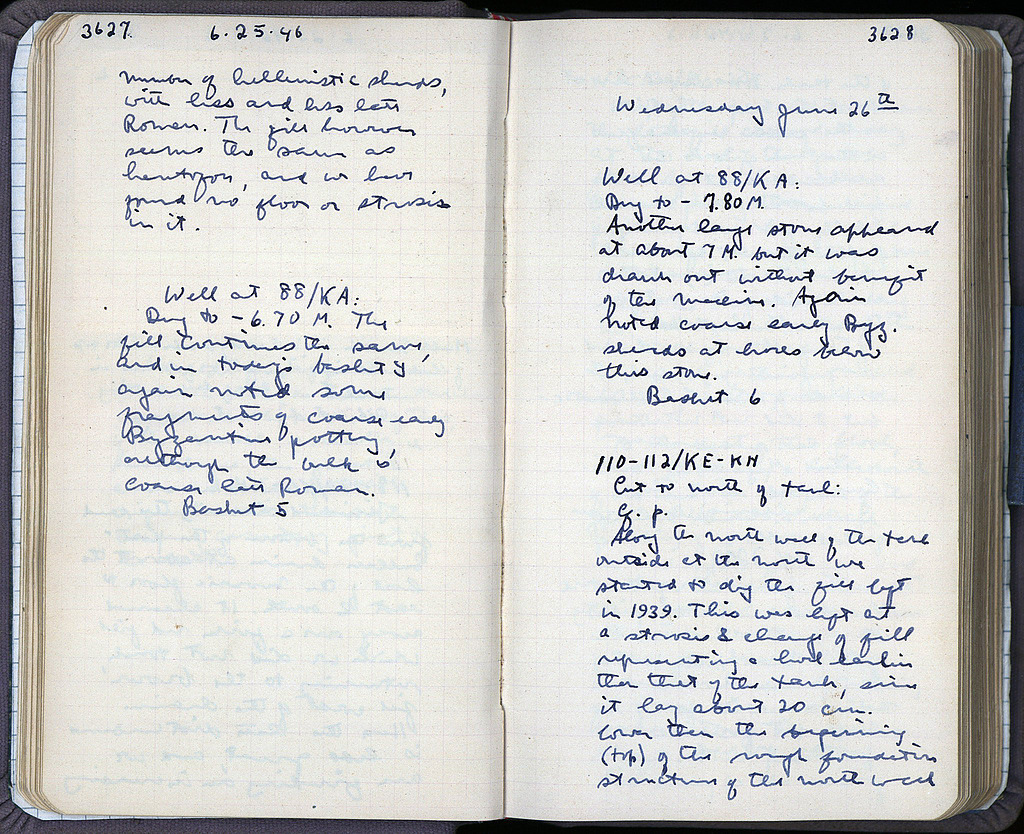 3627 6.25.46
number of hellenistic sherds,
with less and less late
Roman. The fill however
seems the same as
heretofore, and we have
found no floor or strosis
in it.
Well at 88/KA:
Dug to - 6.70 M. The
fill continues the same,
and in today's basket
again noted some
fragments of coarse early
Byzantine pottery,
although the bulk is
coarse late Roman.
Basket 5
3628
Wednesday June 26th
Well at 88/KA:
Dug to - 7.80 M.
Another large stone appeared
at about 7 M. but it was
drawn out without benefit
of the machine. Again
noted coarse early Byz.
sherds at levels below
this stone.
Basket 6
110-112/KE-KH
Cut to north of tank:
Cf. p.
Along the north wall of the tank
outside at the north we
started to dig the fill left
in 1939. This was left at
a strosis & change of fill
representing a level earlier
than that of the tank, since
it lay about 20 cm.
lower than the beginning
(top) of the rough foundation
structure of the north wall